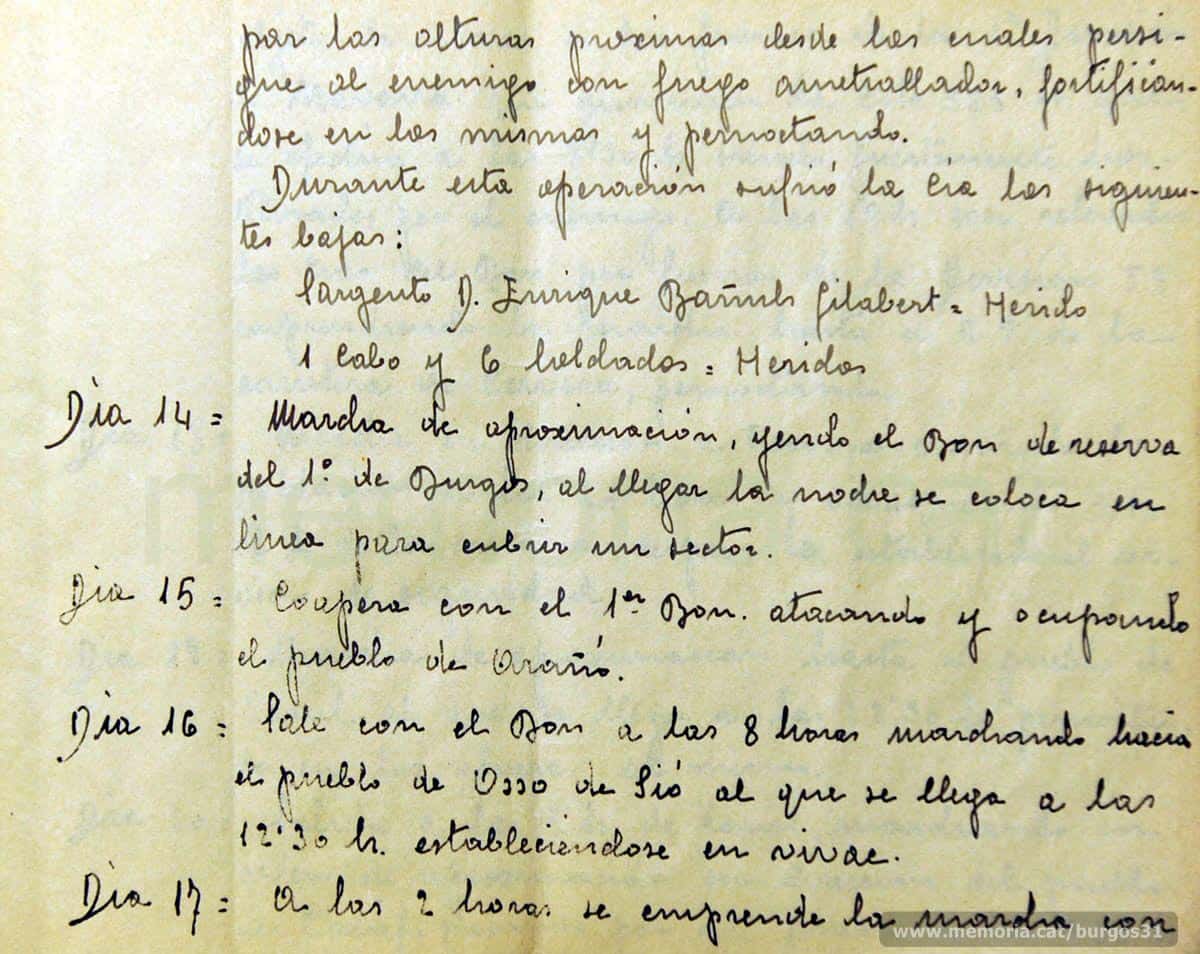 por las alturas proximas desde las cuales persi-
gue al enemigo con fuego ametrallador, fortifican-
dose en las mismas y pernoctando.
Durante esta operación sufrió la Cía las siguien-
tes bajas:
Sargento D. Enrique Bañuls Gilabert = Herido
1 Cabo y 6 Soldados = Heridos
Dia 14 = Marcha de aproximación, yendo el Bon de reserva
del 1º de Burgos, al llegar la noche se coloca en
linea para cubrir un sector.
Dia 15 = Coopera con el 1er Bon. atacando y ocupando
el pueblo de Arañó.
Dia 16 = Sale con el Bon a las 8 horas marchando hacia
el pueblo de Osso de Sió al que se llega a las
12'30 h. estableciendose en vivac.
Dia 17 = A las 2 horas se emprende la marcha con
www.memoria.cat/burgos31